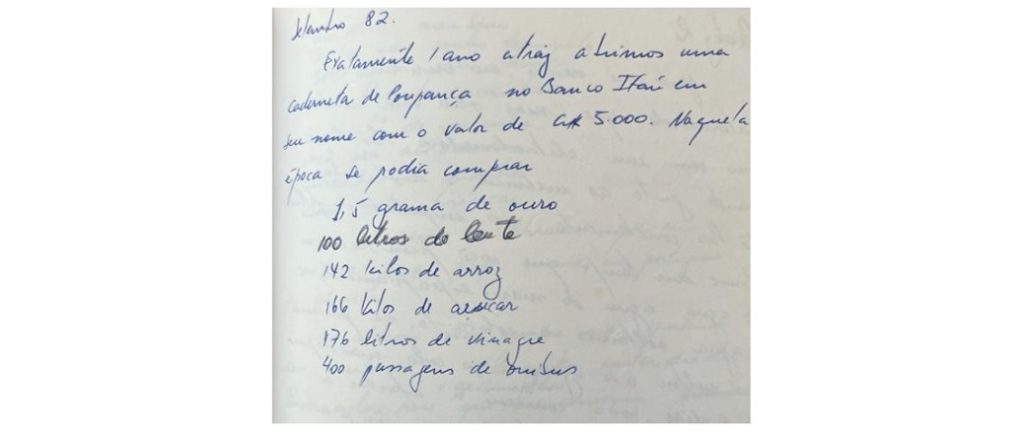 Setembro 82.
Exatamente 1 ano atráz abrimos uma
caderneta de Poupança no Banco Itaú em
seu nome com o valor de Cr$ 5.000. Naquela
época se podia comprar
1,5 grama de ouro
100 litros de leite
142 kilos de arroz
166 kilos de açucar
176 litros de vinagre
400 passagens de onibus